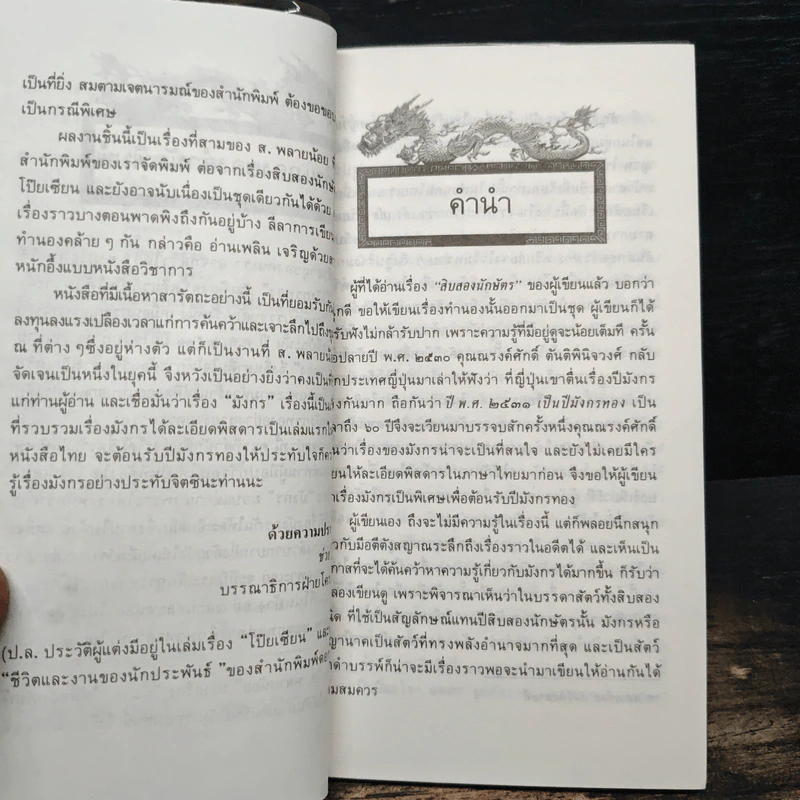 เป็นที่ยิ่ง สมตามเจตนารมณ์ของสำนักพิมพ์ ต้องขอขอบ
เป็นกรณีพิเศษ
ผลงานชิ้นนี้เป็นเรื่องที่สามของ ส. พลายน้อย
สำนักพิมพ์ของเราจัดพิมพ์ ต่อจากเรื่องสิบสองนักษั
โป๊ยเซียน และยังอาจนับเนื่องเป็นชุดเดียวกันได้ด้วย
เรื่องราวบางตอนพาดพิงถึงกันอยู่บ้าง ลีลาการเขียน
ทำนองคล้าย ๆ กัน กล่าวคือ อ่านเพลิน เจริญด้วยส
หนักอึ้งแบบหนังสือวิชาการ
หนังสือที่มีเนื้อหาสารัตถะอย่างนี้ เป็นที่ยอมรับกัน
ลงทุนลงแรงเปลืองเวลาแก่การค้นคว้าและเจาะลึกไปถึง
ณ ที่ต่าง ๆซึ่งอยู่ห่างตัว แต่ก็เป็นงานที่ ส. พลายน้อ
จัดเจนเป็นหนึ่งในยุคนี้ จึงหวังเป็นอย่างยิ่งว่าคงเป็นที่
แก่ท่านผู้อ่าน และเชื่อมั่นว่าเรื่อง “มังกร” เรื่องนี้เป็น
ที่รวบรวมเรื่องมังกรได้ละเอียดพิสดารเป็นเล่มแรกใ
หนังสือไทย จะต้อนรับปีมังกรทองให้ประทับใจก็ค
รู้เรื่องมังกรอย่างประทับจิตซินะท่านนะ
ด้วยความปร
ช่ว
บรรณาธิการฝ่ายโค
(ป.ล. ประวัติผู้แต่งมีอยู่ในเล่มเรื่อง “โป๊ยเซียน” และ
“ชีวิตและงานของนักประพันธ์ ”ของสำนักพิมพ์ดอ
คำนำ
ผู้ที่ได้อ่านเรื่อง “สิบสองนักษัตร” ของผู้เขียนแล้ว บอกว่า
ถูกดี ขอให้เขียนเรื่องทำนองนั้นออกมาเป็นชุด ผู้เขียนก็ได้
รับฟังไม่กล้ารับปาก เพราะความรู้ที่มีอยู่ดูจะน้อยเต็มที ครั้น
ปลายปี พ.ศ. ๒๕๓๐ คุณณรงค์ศักดิ์ ตันติพินิจวงศ์ กลับ
กประเทศญี่ปุ่นมาเล่าให้ฟังว่า ที่ญี่ปุ่นเขาตื่นเรื่องปีมังกร
งกันมาก ถือกันว่า ปี พ.ศ. ๒๕๓๑ เป็นปีมังกรทอง เป็น
ลาถึง ๖๐ ปีจึงจะเวียนมาบรรจบสักครั้งหนึ่งคุณณรงค์ศักดิ์
นว่าเรื่องของมังกรน่าจะเป็นที่สนใจ และยังไม่เคยมีใคร
ยนให้ละเอียดพิสดารในภาษาไทยมาก่อน จึงขอให้ผู้เขียน
าเรื่องมังกรเป็นพิเศษเพื่อต้อนรับปีมังกรทอง
ผู้เขียนเอง ถึงจะไม่มีความรู้ในเรื่องนี้ แต่ก็พลอยนึกสนุก
วกับมีอตีตังสญาณระลึกถึงเรื่องราวในอดีตได้ และเห็นเป็น
กาสที่จะได้ค้นคว้าหาความรู้เกี่ยวกับมังกรได้มากขึ้น ก็รับว่า
ลองเขียนดู เพราะพิจารณาเห็นว่าในบรรดาสัตว์ทั้งสิบสอง
นิด ที่ใช้เป็นสัญลักษณ์แทนปีสิบสองนักษัตรนั้น มังกรหรือ
ญานาคเป็นสัตว์ที่ทรงพลังอำนาจมากที่สุด และเป็นสัตว์
าดำบรรพ์ก็น่าจะมีเรื่องราวพอจะนำมาเขียนให้อ่านกันได้
มสมควร